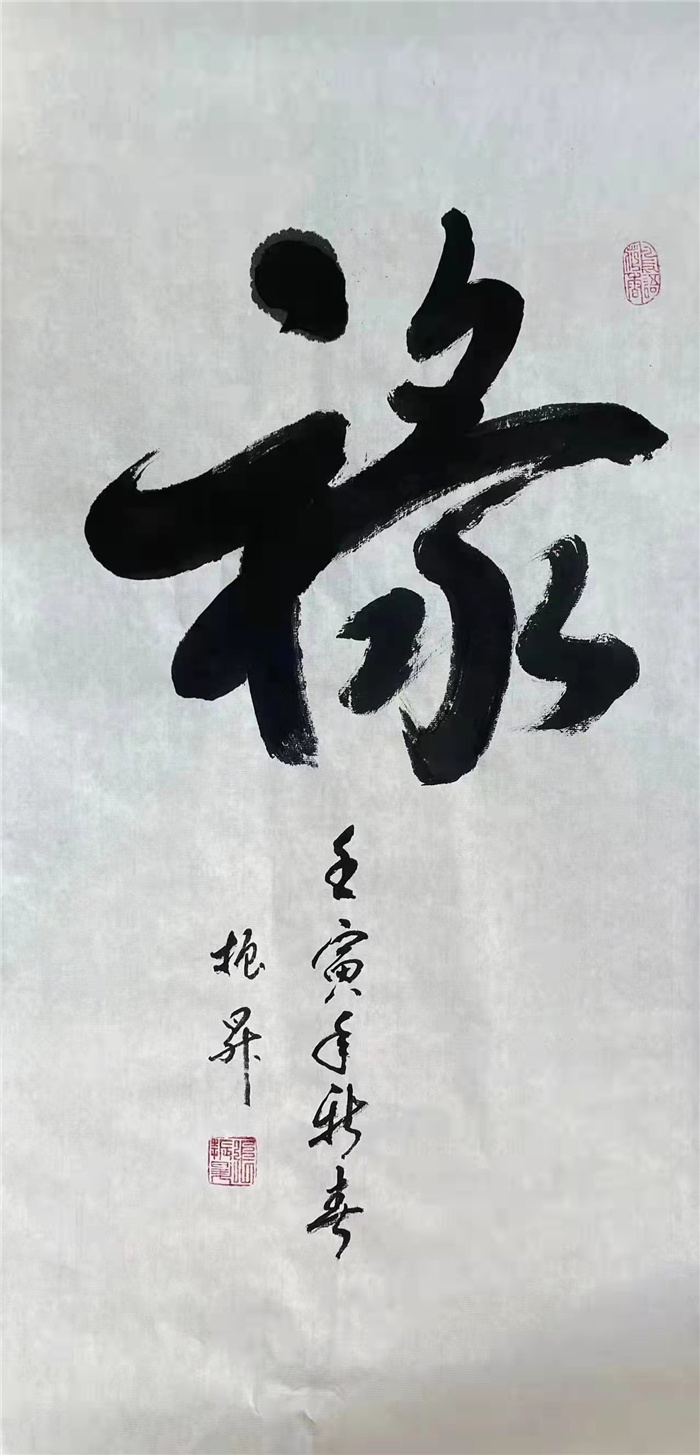 禄
壬寅年新春
振昇